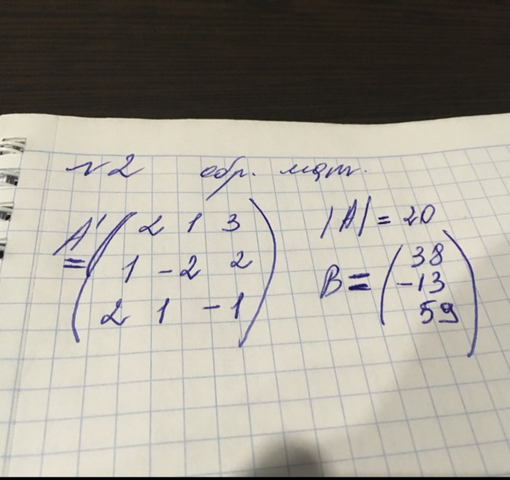 №2 обр. мат.
A' = (2 1 3
1 -2 2
2 1 -1)
|A| = 20
B = (38
-13
59)